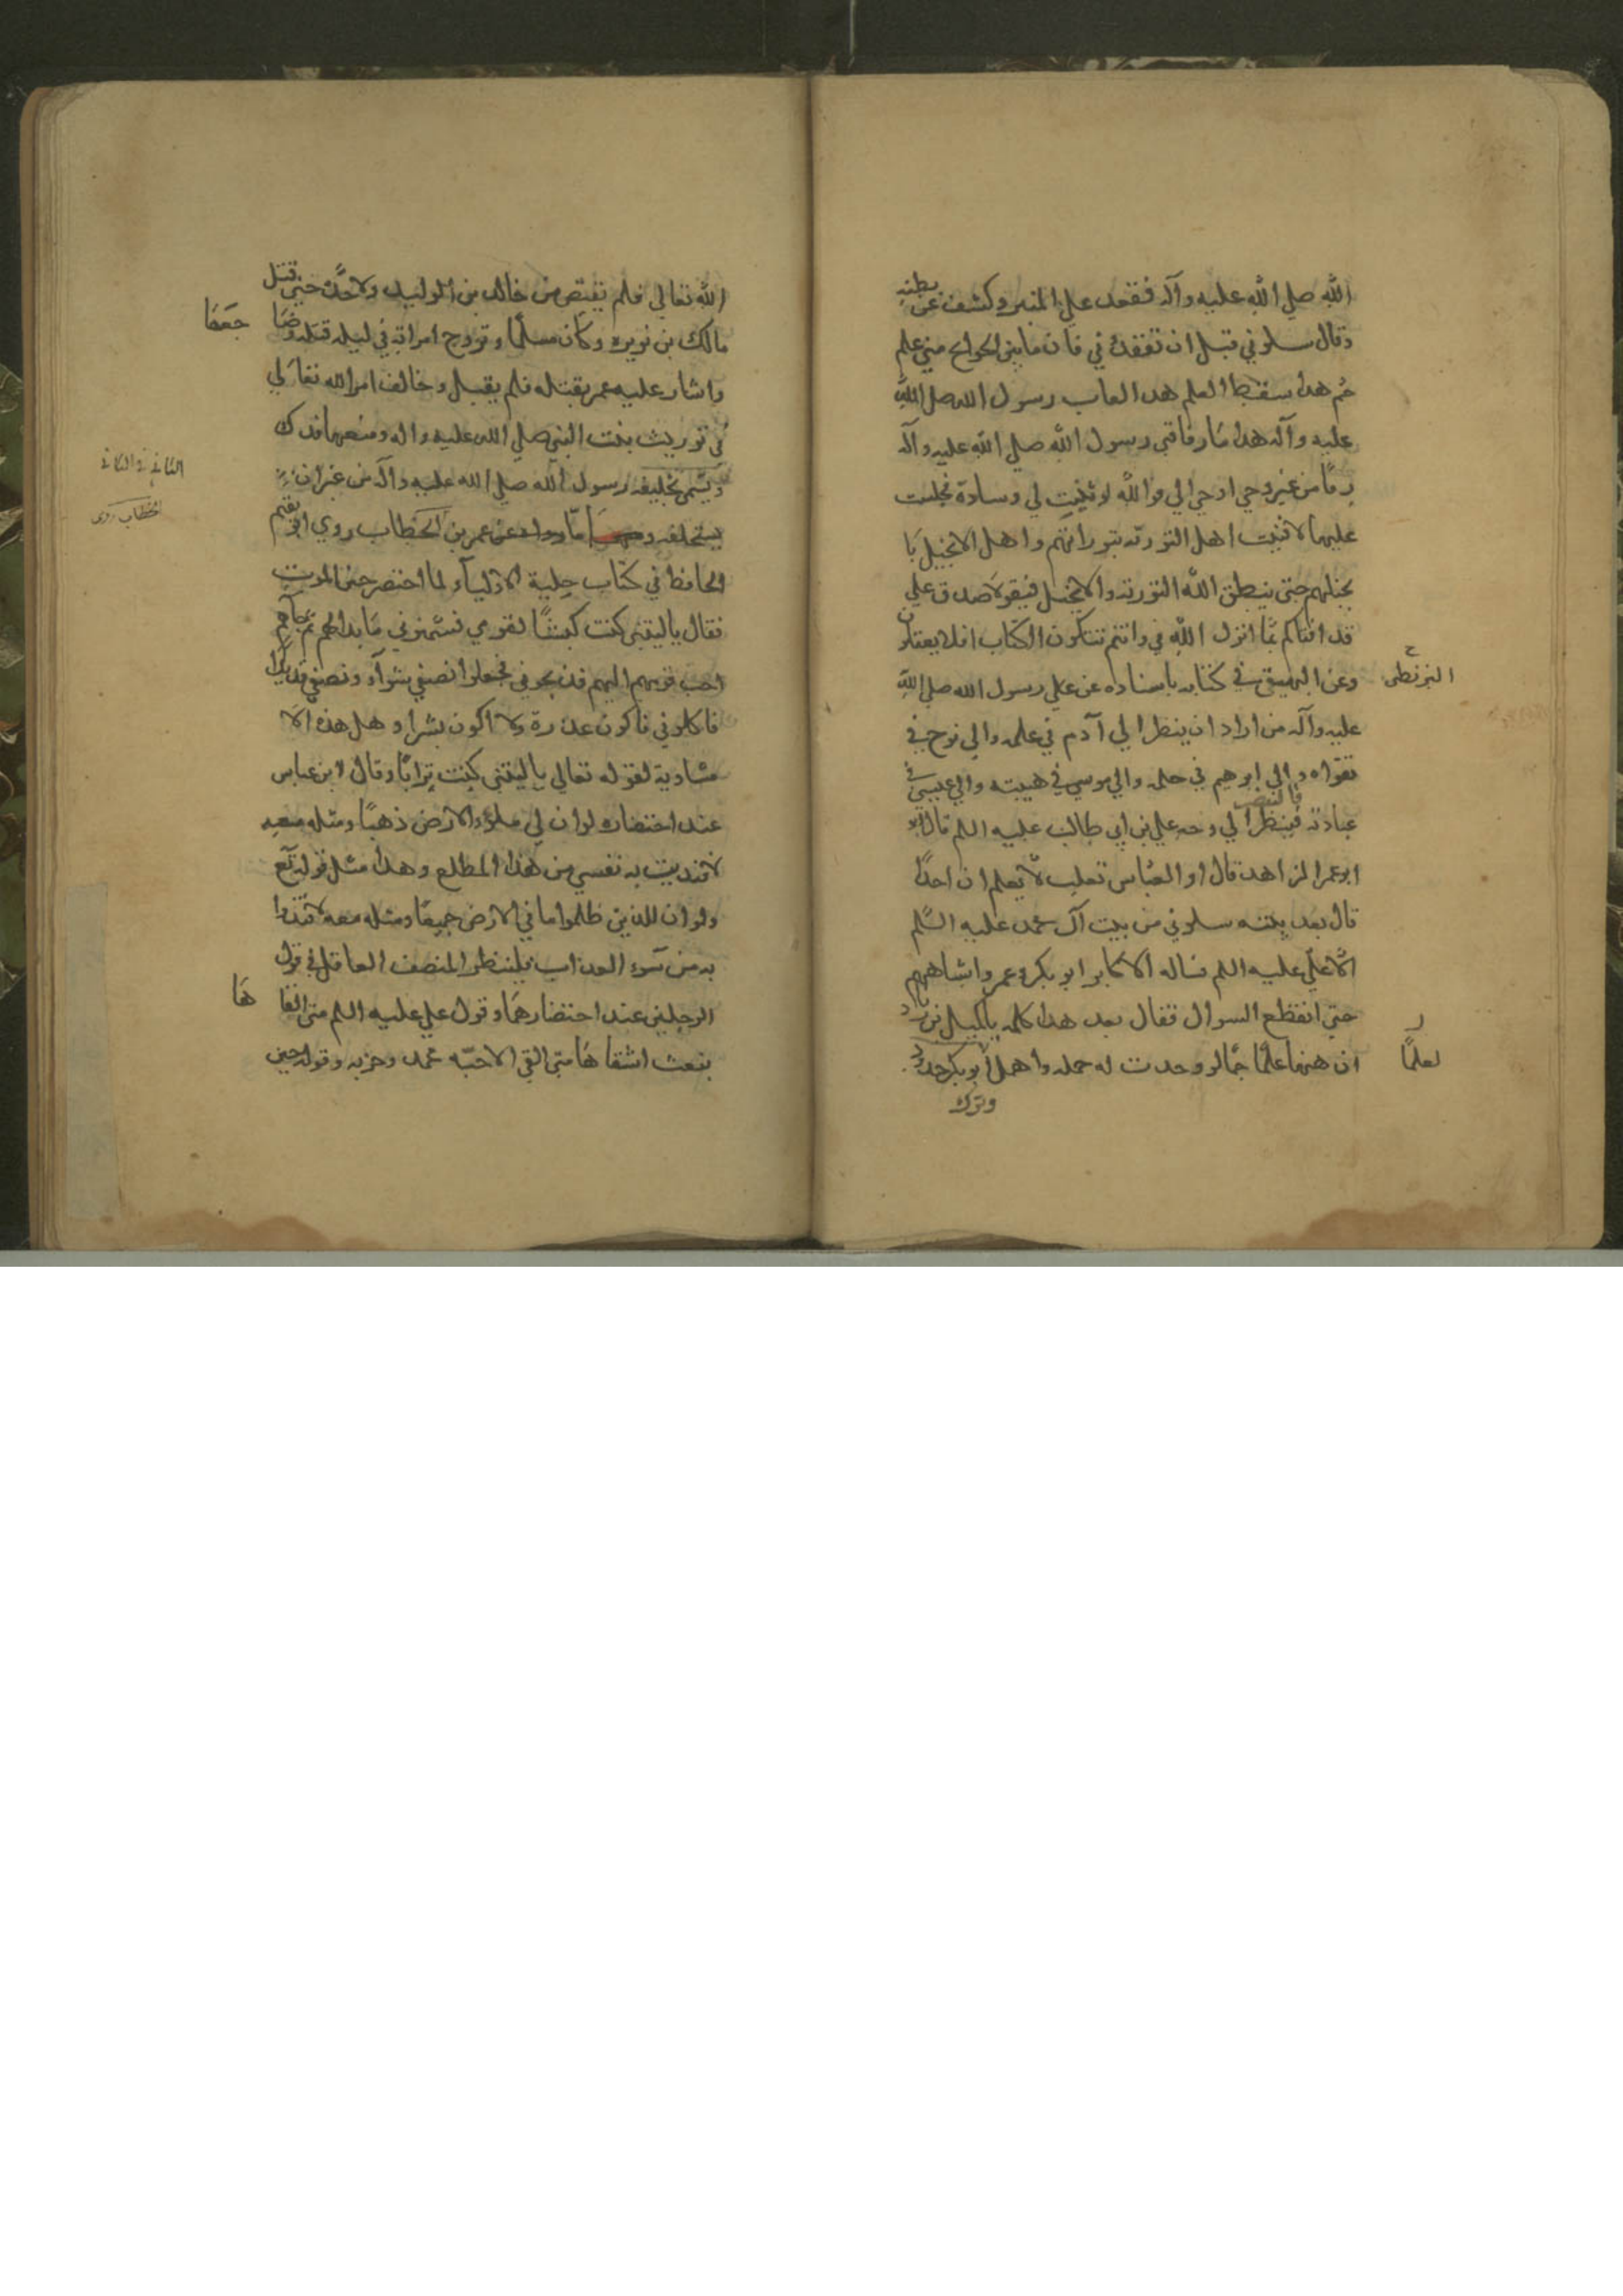 الله صلي الله عليه وآله فقعد علي المنبر وكشف عن بطنه
وقال سلوني قبل ان تفقدوني فان ما بين الجوانح مني علم
جم هذا سقط العلم هذا لعاب رسول الله صلي الله
عليه وآله هذا ما زقني رسول الله صلي الله عليه وآله
زقا من غير وحي اوحي الي فوالله لو ثنيت لي وسادة فجلست
عليها لافتيت اهل التورية بتوراتهم واهل الانجيل با
نجيلهم حتي ينطق الله التورية والانجيل فيقولا صدق علي
قد افتاكم بما انزل الله في وانتم تتلون الكتاب افلا يعقلون
وعن البيهقي في كتابه باسناده عن علي رسول الله صلي الله
عليه وآله من اراد ان ينظر الي آدم في علمه والي نوح في
تقواه والي ابرهيم في حلمه والي موسي في هيبته والي عيسي في
عبادته فينظر الي وجه علي بن ابي طالب عليه السلم قال ابو
ابو عمر الزاهد قال ابو العباس ثعلب لا يعلم ان احدا
قال بعد نبيه سلوني من بيت آل محمد عليه السلم
الا علي عليه السلم فساله الاكابر ابو بكر وعمر واشباههم
حتي انقطع السوال فقال بعد هذا كله يا كميل بن زياد
ان ههنا علما جما لو وجدت له حمله واهمل ابو بكر حدود
وترك
البزنطي
لعلما
الله تعالي فلم يقتص من خالد بن الوليد ولا حده حتي قتل
مالك بن نويره وكان مسلما وتزوج امراته في ليله قتله وضا
جعها
واشار عليه عمر بقتله فلم يقبل وخالف امر الله تعالي
في توريث بنت النبي صلي الله عليه واله ومنعها فدك
وتسمي بخليفه رسول الله صلي الله عليه وآله من غير ان
يستخلفه واما عن عمر بن الخطاب روي ابو نعيم
الحافظ في كتاب حلية الاوليآء لما احتضر حين الموت
فقال ياليتني كنت كبشا لقومي فسمنوني ما بدا لهم ثم جآءهم
احب قومهم اليهم فذبحوني فجعلوا نصفي شوآء ونصفي قديدا
فاكلوني فاكون عذرة ولا اكون بشرا وهل هذه الا
مساوية لقوله تعالي ياليتني كنت ترابا وقال لابن عباس
عند احتضاره لو ان لي ملؤ الارض ذهبا ومثله معه
لافتديت به نفسي من هذا المطلع وهذا مثل قوله تع
ولو ان للذين ظلموا ما في الارض جميعا ومثله معه لافتدوا
به من سوء العذاب فلينظر المنصف العاقل في قول
الرجلين عند احتضارهما وقول علي عليه السلم متي القا
ها
ينبعث اشقاها متي القي الاحبه محمد وحزبه وقوله حين
الخطاب روي